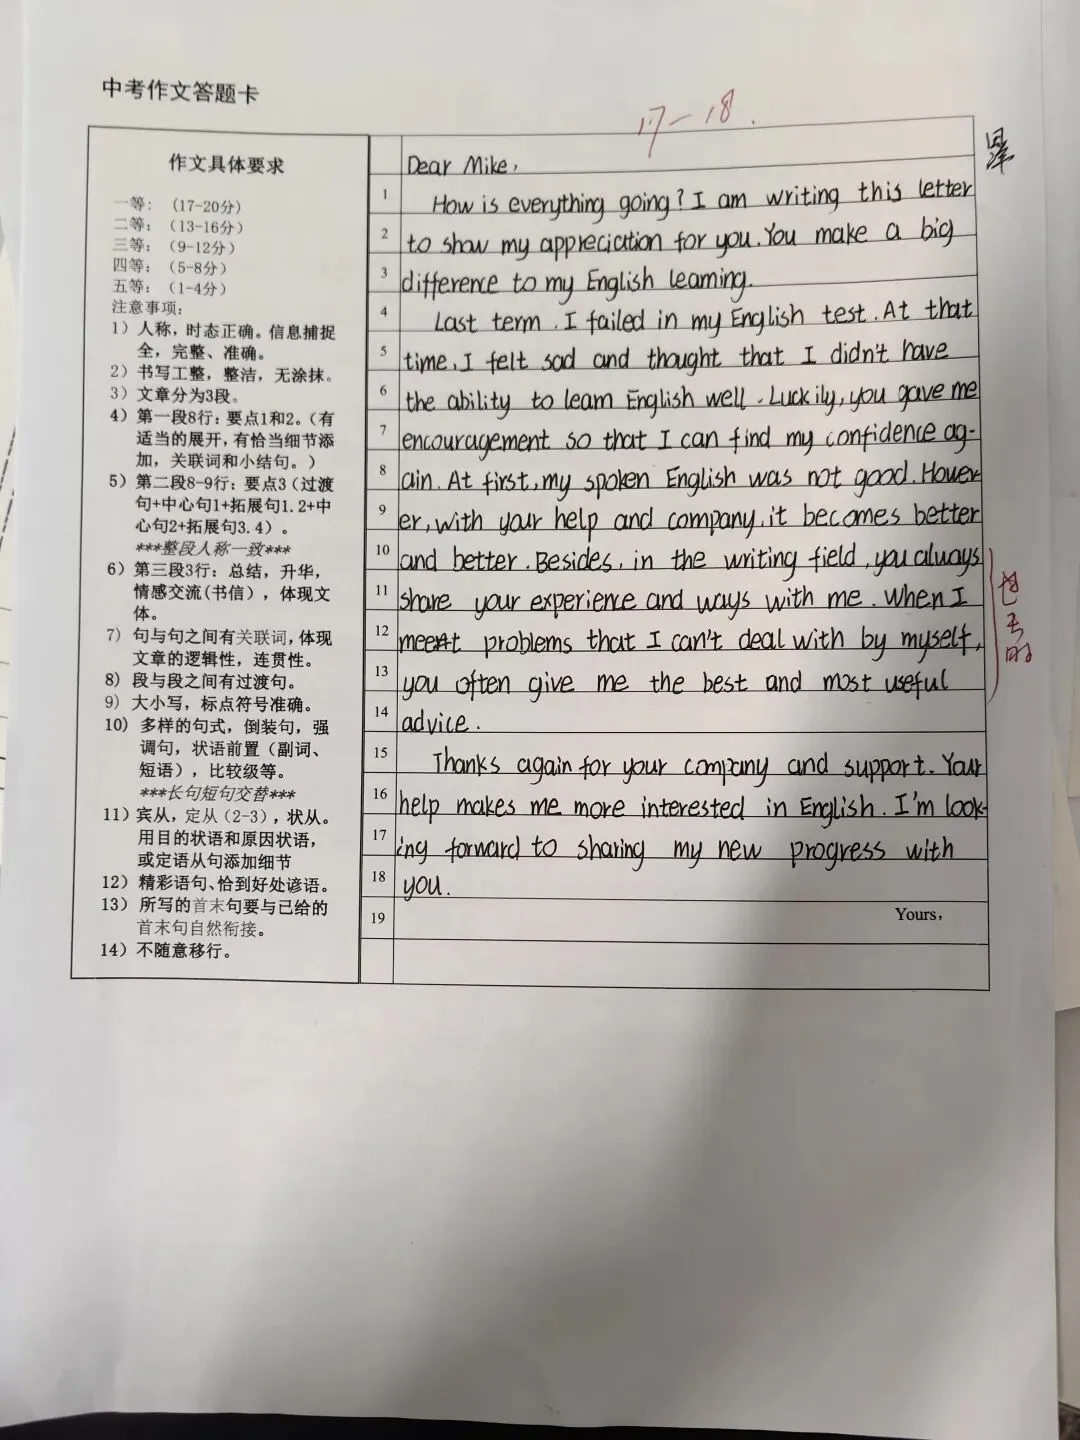 中考作文答题卡
17-18.
作文具体要求
一等：（17-20分）
二等：（13-16分）
三等：（9-12分）
四等：（5-8分）
五等：（1-4分）
注意事项：
1）人称，时态正确。信息捕捉
全，完整、准确。
2）书写工整，整洁，无涂抹。
3）文章分为3段。
4）第一段8行：要点1和2。（有
适当的展开，有恰当细节添
加，关联词和小结句。）
5）第二段8-9行：要点3（过渡
句+中心句1+拓展句1.2+中
心句2+拓展句3.4）。
***整段人称一致***
6）第三段3行：总结，升华，
情感交流(书信），体现文
体。
7）句与句之间有关联词，体现
文章的逻辑性，连贯性。
8）段与段之间有过渡句。
9）大小写，标点符号准确。
10）多样的句式，倒装句，强
调句，状语前置（副词、
短语），比较级等。
***长句短句交替***
11）宾从，定从（2-3），状从。
用目的状语和原因状语，
或定语从句添加细节
12）精彩语句、恰到好处谚语。
13）所写的首末句要与已给的
首末句自然衔接。
14）不随意移行。
Dear Mike,
1 How is everything going? I am writing this letter
2 to show my appreciation for you. You make a big
3 difference to my English learning.
4 Last term, I failed in my English test. At that
5 time, I felt sad and thought that I didn't have
6 the ability to learn English well. Luckily, you gave me
7 encouragement so that I can find my confidence ag-
8 ain. At first, my spoken English was not good. Howev
9 er, with your help and company, it becomes better
10 and better. Besides, in the writing field, you always
11 share your experience and ways with me. When I
12 meet problems that I can't deal with by myself,
13 you often give me the best and most useful
14 advice.
15 Thanks again for your company and support. Your
16 help makes me more interested in English. I'm look-
17 ing forward to sharing my new progress with
18 you.
19 Yours,